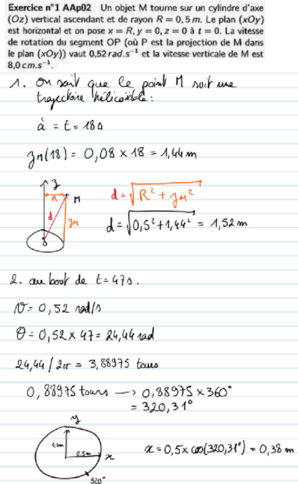 Exercice n°1 AAp02 Un objet M tourne sur un cylindre d'axe
(Oz) vertical ascendant et de rayon R = 0,5 m. Le plan (xOy)
est horizontal et on pose x = R, y = 0, z = 0 à t = 0. La vitesse
de rotation du segment OP (où P est la projection de M dans
le plan (xOy)) vaut 0,52 rad.s⁻¹ et la vitesse verticale de M est
8,0 cm.s⁻¹.
1. On sait que le point M suit une
trajectoire hélicoïdale :
à t = 18s
zM(18) = 0,08 × 18 = 1,44 m
z
R
M
d
zM
d = √R² + zM²
d = √0,5² + 1,44² = 1,52 m
2. au bout de t = 47s.
v = 0,52 rad/s
θ = 0,52 × 47 = 24,44 rad
24,44 / 2π = 3,88975 tours
0,88975 tours → 0,88975 × 360°
= 320,31°
y
0,5m
0,5m
x
320°
x = 0,5 × cos(320,31°) = 0,38 m